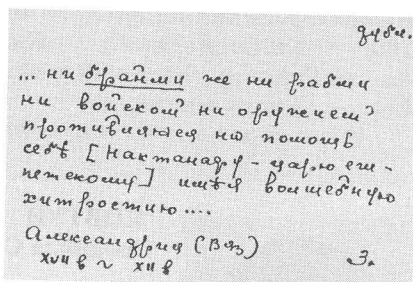 дубл.
... ни браньми же ни рабми
ни войском ни оружием
противляяся но помощь
себѣ [Нактанаву - царю еги-
петскому] имѣя волшебную
хитростию ....
Александрия (Вяз)
XVII в ~ XII в
З.